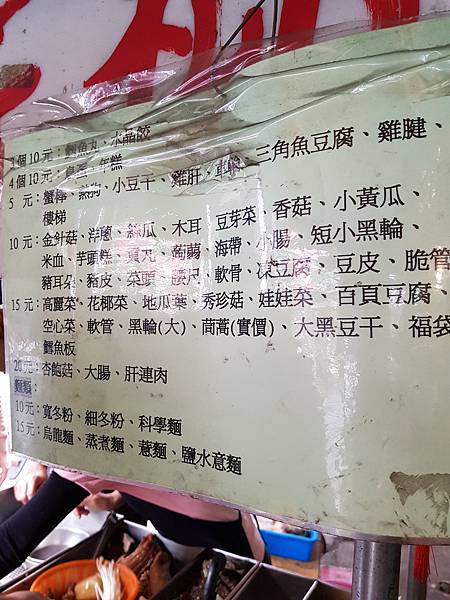 3個10元：鱈魚丸、水晶餃
4個10元：鳥蛋、年糕
5 元：蟹棒、熱狗、小豆干、雞肝、車輪、三角魚豆腐、雞腱、
樓梯
10元：金針菇、洋蔥、絲瓜、木耳 豆芽菜、香菇、小黃瓜、
米血、芋頭糕、貢丸、蒟蒻、海帶、小腸、短小黑輪、
豬耳朵、豬皮、菜頭 腰尺、軟骨、凍豆腐、豆皮、脆管
15元：高麗菜、花椰菜、地瓜葉、秀珍菇、娃娃菜、百頁豆腐、
空心菜、軟管、黑輪(大)、茼蒿(實價)、大黑豆干、福袋
鱈魚板
20元：杏鮑菇、大腸、肝連肉
麵類：
10元：寬冬粉、細冬粉、科學麵
15元：烏龍麵、蒸煮麵、薏麵、鹽水意麵